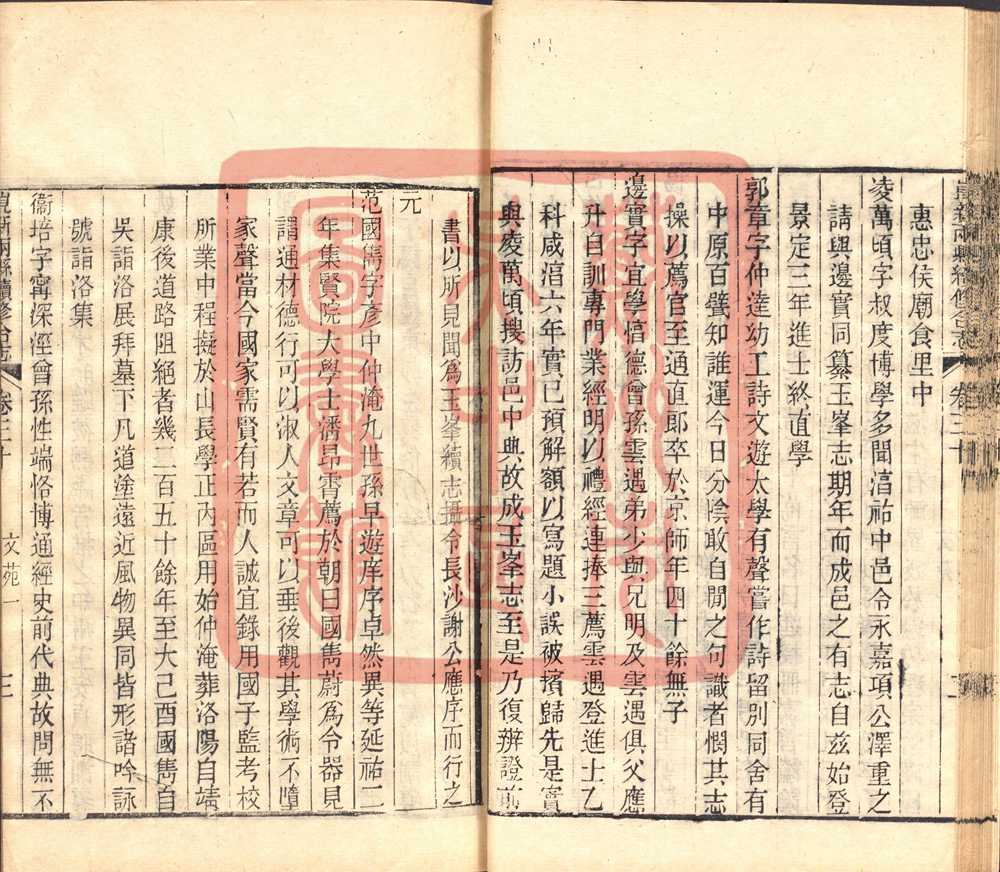 崑新兩縣續修合志 卷三十
惠忠侯廟食里中
凌萬頃字叔度博學多聞淳祐中邑令永嘉項公澤重之
請與邊實同纂玉峯志期年而成邑之有志自兹始登
景定三年進士終直學
郭章字仲達幼工詩文遊太學有聲嘗作詩留別同舍有
中原百甓知誰運今日分陰敢自閒之句識者憫其志
操以薦官至通直郎卒於京師年四十餘無子
邊實字宜學惇德曾孫雲遇弟少與兄明及雲遇俱父應
升自訓專門業經明以禮經連捧三薦雲遇登進士乙
科咸淳六年實已預解額以寫題小誤被擯歸先是實
與凌萬頃搜訪邑中典故成玉峯志至是乃復辨證前
書以所見聞爲玉峯續志攝令長沙謝公應序而行之
元
范國雋字彥中仲淹九世孫早遊庠序卓然異等延祐二
年集賢院大學士潘昂霄薦於朝曰國雋蔚爲令器見
謂通材德行可以淑人文章可以垂後觀其學術不墮
家聲當今國家需賢有若而人誠宜錄用國子監考校
所業中程擬於山長學正內區用始仲淹葬洛陽自靖
康後道路阻絕者幾二百五十餘年至大己酉國雋自
吳詣洛展拜墓下凡道塗遠近風物異同皆形諸吟詠
號詣洛集
衞培字寧深涇曾孫性端恪博通經史前代典故問無不
崑新兩縣續修合志 卷三十 文苑一 二